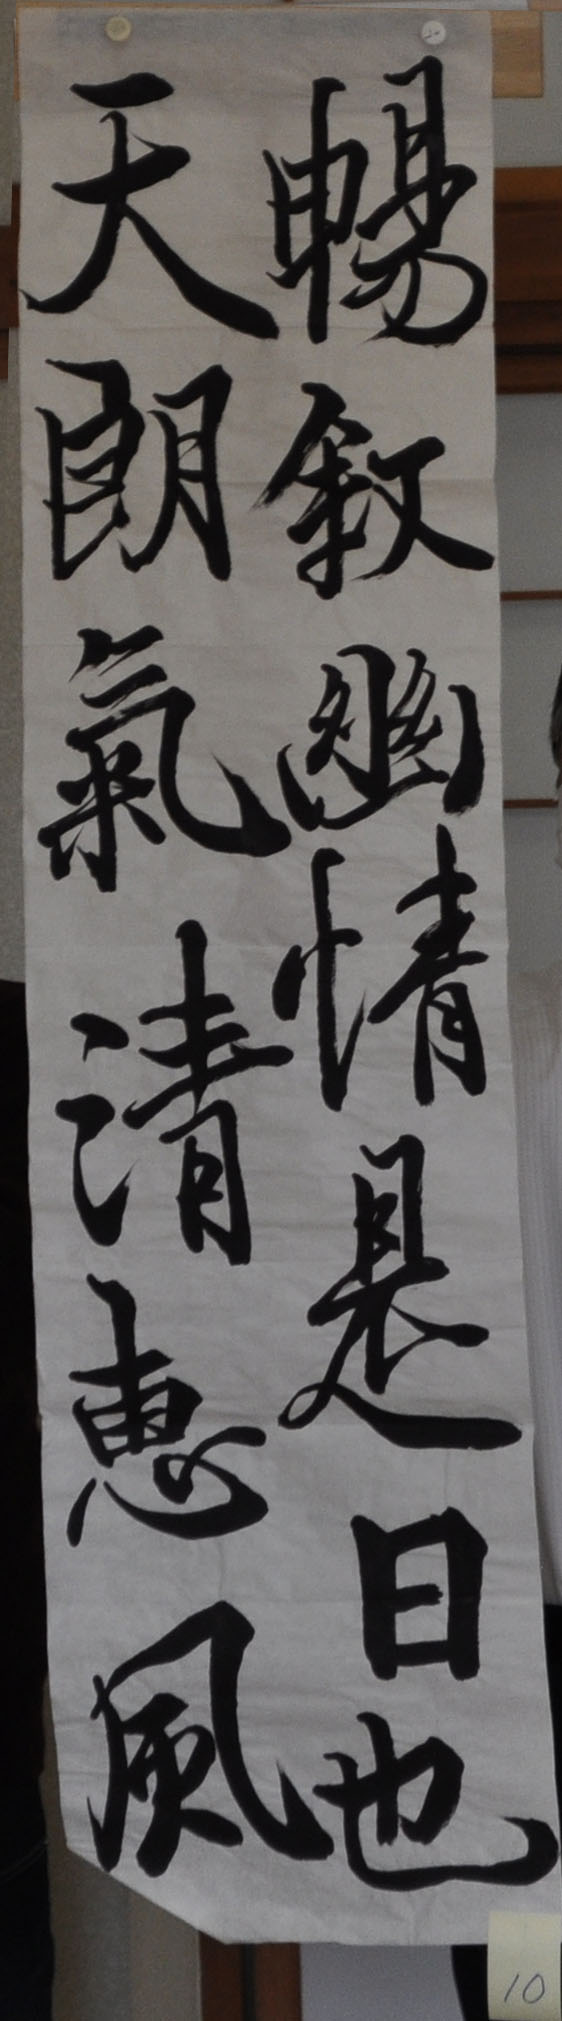 暢叙幽情是日也
天朗氣清惠風
10